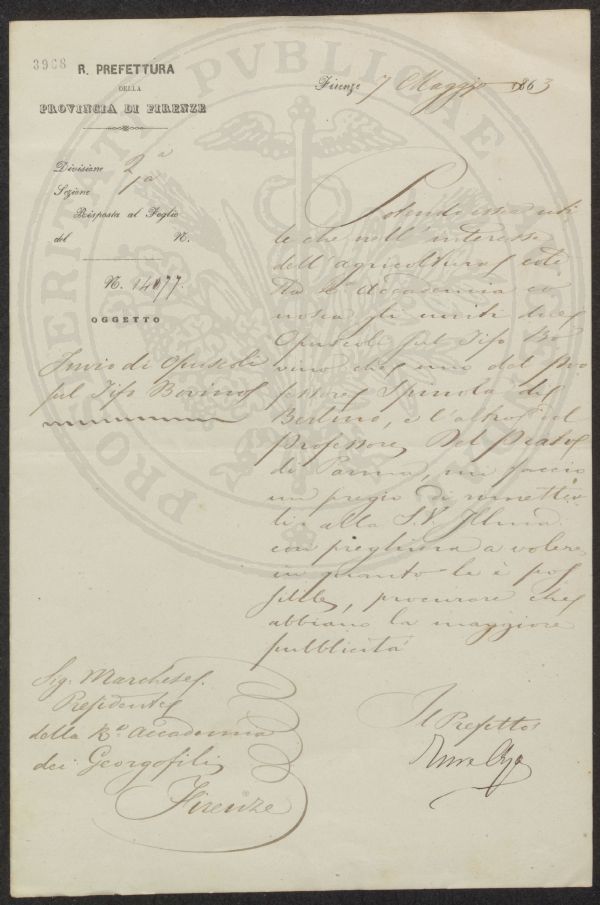 3968
R. PREFETTURA
DELLA
PROVINCIA DI FIRENZE
Firenze 7 Maggio 1863
Divisione 2ª
Sezione 1ª
Risposta al Foglio
del N.
N. 14077.
OGGETTO
Invio di Opuscoli
sul Tifo Bovino
Potendo essere uti
le che nell'interesse
dell'agricoltura cote
sta Rª Accademia co
nosca gli uniti due
Opuscoli sul Tifo Bo
vino che uno del Pro
fessore Spinola di
Berlino, e l'altro del
Professore Del Prato
di Parma, mi faccio
un pregio di rimetter
li alla S.V. Illma
con preghiera a volere
in quanto le è pos
sibile, procurare che
abbiano la maggiore
pubblicità
Sig. Marchese
Presidente
della Rª Accademia
dei Georgofili
Firenze
Il Prefetto
PROSPERITATI PUBLICAE